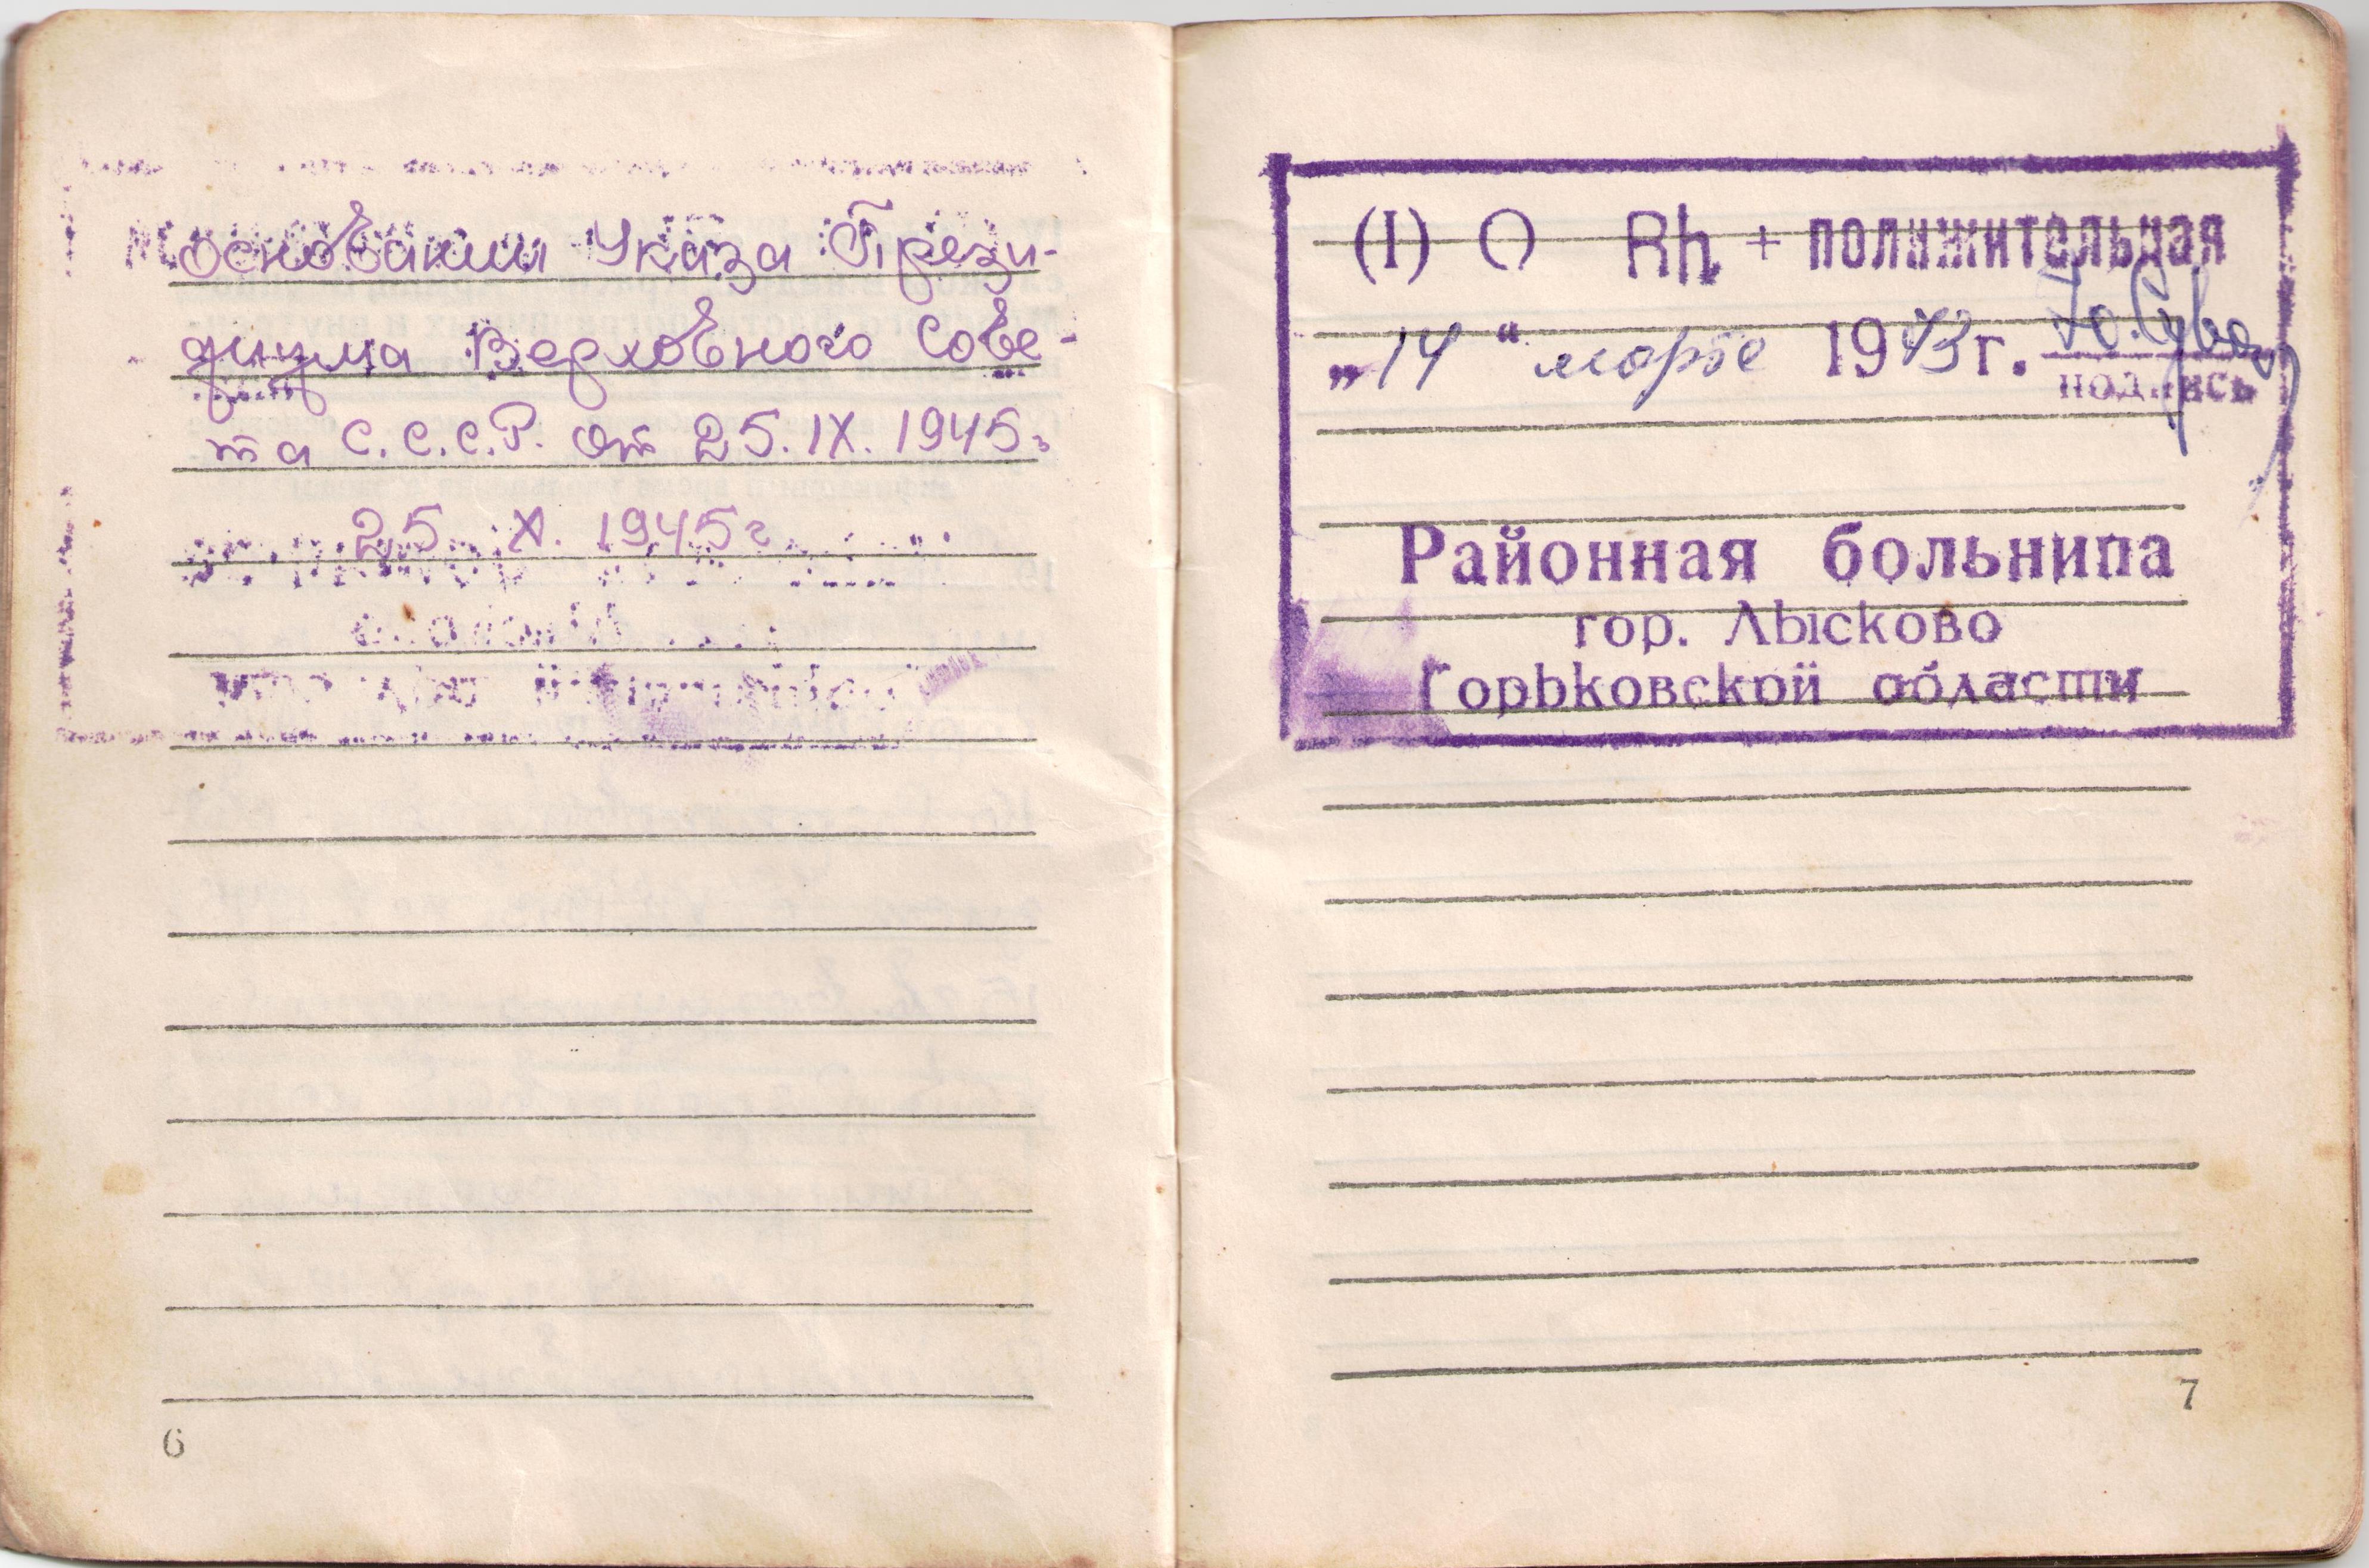 основании Указа Прези-
диума Верховного Сове-
та С.С.С.Р. от 25.IX.1945г
25 X. 1945г
6
(I) О Rh + положительная
„14“ 19 г.
подпись
Районная больница
гор. Лысково
Горьковской области
7